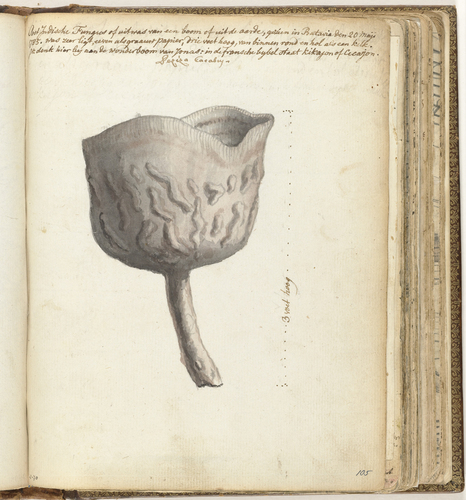 Oost Indische Fungus of uitwas van een boom of uit de aarde, gesien in Batavia den 20 Maij
785. was zeer ligt, even als graauw papier, drie voet hoog, van binnen rond en hol als een kelk.
ik denk hier bij aan de wonderboom van Jonas: in de fransche bybel staat kikajon of
3 voet hoog
105